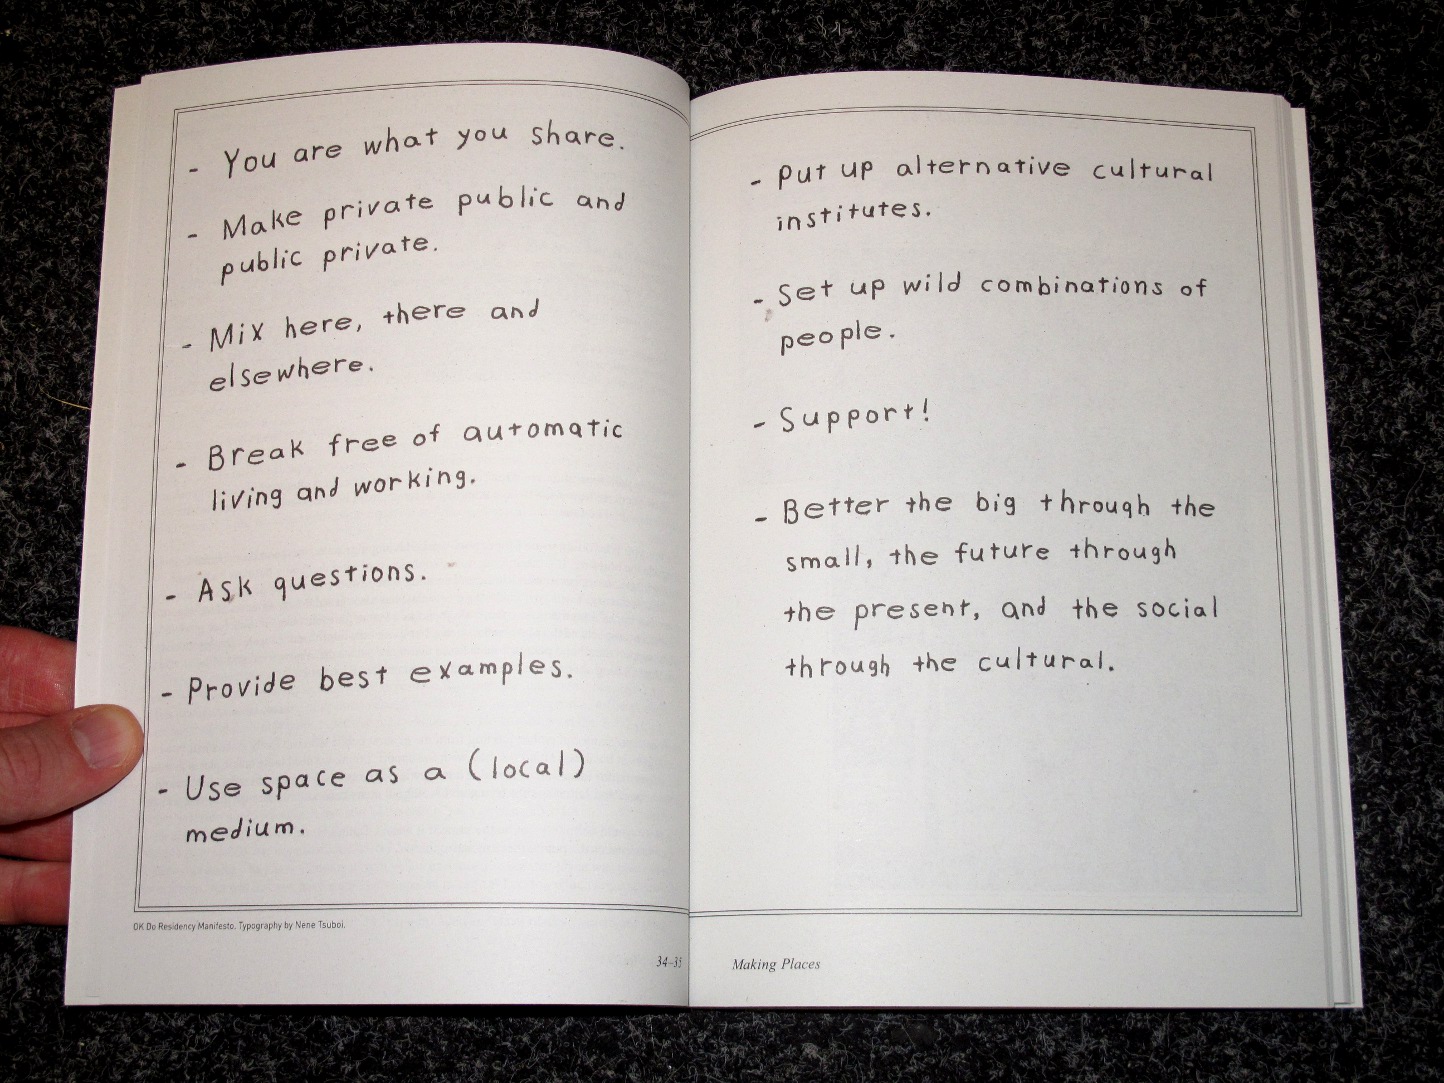 - You are what you share.
- Make private public and
public private.
- Mix here, there and
elsewhere.
- Break free of automatic
living and working.
- Ask questions.
- Provide best examples.
- Use space as a (local)
medium.
OK Do Residency Manifesto. Typography by Nene Tsuboi.
34–35
- Put up alternative cultural
institutes.
- Set up wild combinations of
people.
- Support!
- Better the big through the
small, the future through
the present, and the social
through the cultural.
Making Places